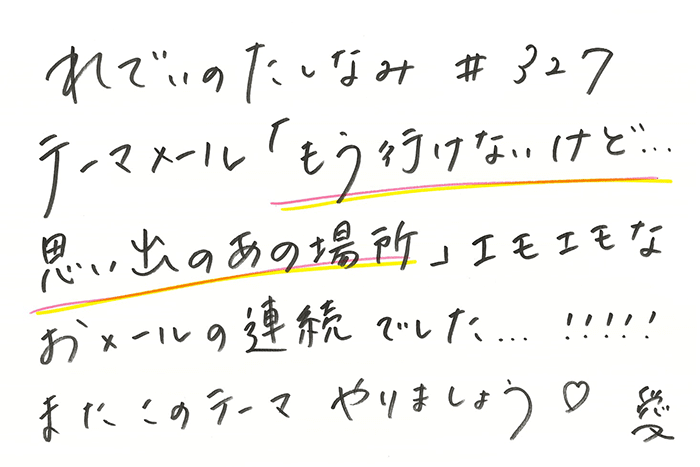 れでぃのたしなみ #327
テーマメール「もう行けないけど…
思い出のあの場所」エモエモな
おメールの連続でした… !!!!!
またこのテーマ やりましょう♡ 愛